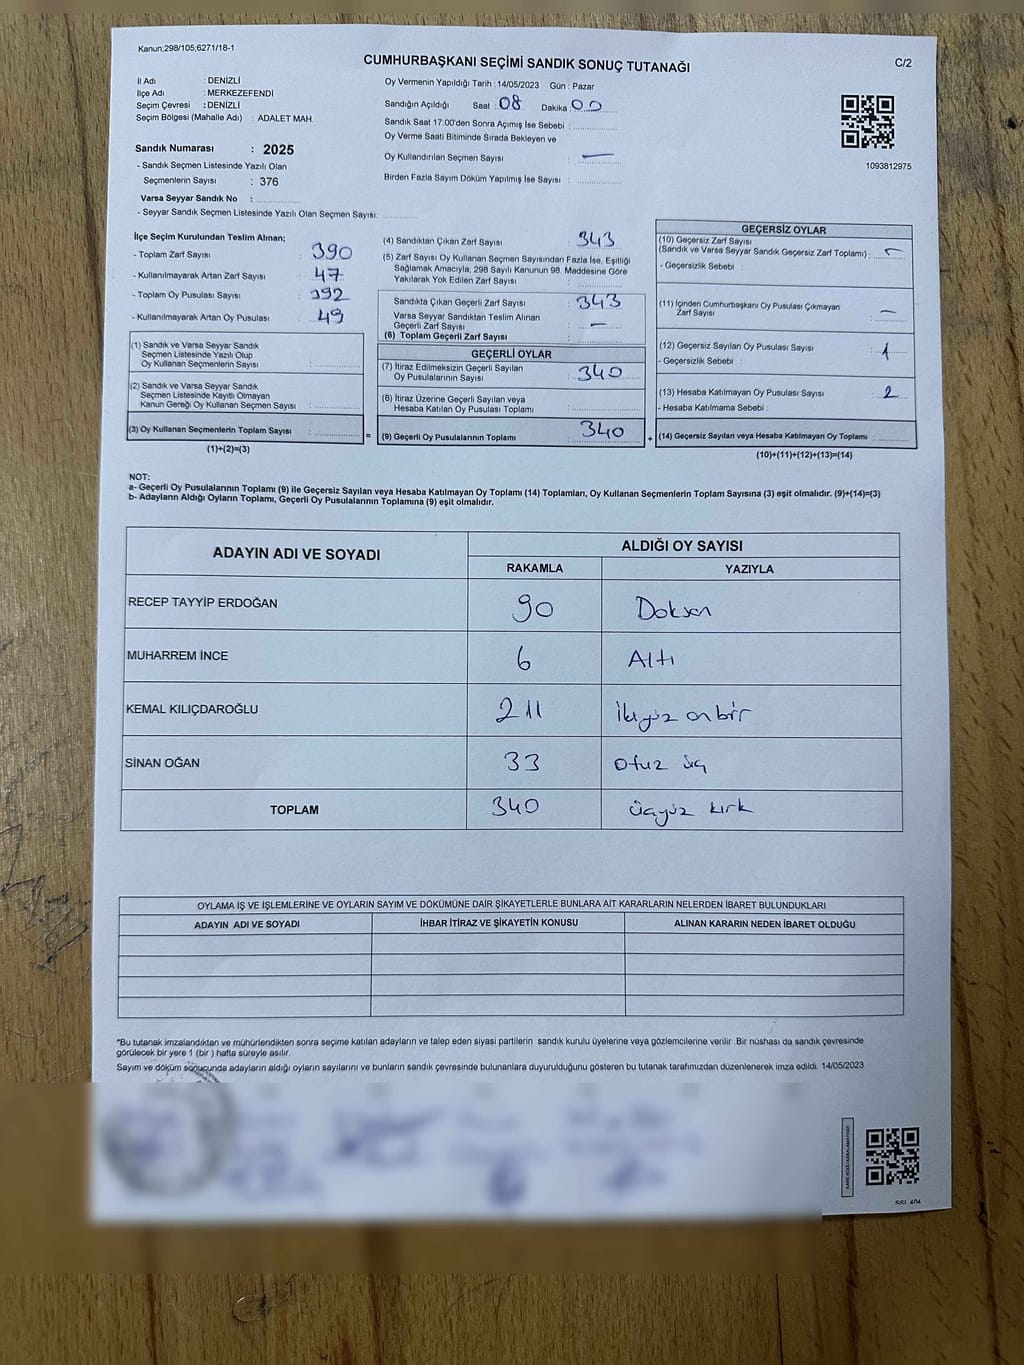 Kanun;298/105;6271/18-1
CUMHURBAŞKANI SEÇİMİ SANDIK SONUÇ TUTANAĞI
C/2
İl Adı : DENİZLİ
İlçe Adı : MERKEZEFENDİ
Seçim Çevresi : DENİZLİ
Seçim Bölgesi (Mahalle Adı) : ADALET MAH.
Oy Vermenin Yapıldığı Tarih : 14/05/2023 Gün : Pazar
Sandığın Açıldığı Saat : 08 Dakika : 00
Sandık Saat 17:00'den Sonra Açımış İse Sebebi :
Oy Verme Saati Bitiminde Sırada Bekleyen ve
Oy Kullandırılan Seçmen Sayısı : —
Birden Fazla Sayım Döküm Yapılmış İse Sayısı :
1093812975
Sandık Numarası : 2025
- Sandık Seçmen Listesinde Yazılı Olan
Seçmenlerin Sayısı : 376
Varsa Seyyar Sandık No :
- Seyyar Sandık Seçmen Listesinde Yazılı Olan Seçmen Sayısı:
İlçe Seçim Kurulundan Teslim Alınan;
- Toplam Zarf Sayısı : 390
- Kullanılmayarak Artan Zarf Sayısı : 47
- Toplam Oy Pusulası Sayısı : 392
- Kullanılmayarak Artan Oy Pusulası : 49
(1) Sandık ve Varsa Seyyar Sandık
Seçmen Listesinde Yazılı Olup
Oy Kullanan Seçmenlerin Sayısı :
(2) Sandık ve Varsa Seyyar Sandık
Seçmen Listesinde Kayıtlı Olmayan
Kanun Gereği Oy Kullanan Seçmen Sayısı :
(3) Oy Kullanan Seçmenlerin Toplam Sayısı :
(1)+(2)=(3)
(4) Sandıktan Çıkan Zarf Sayısı : 343
(5) Zarf Sayısı Oy Kullanan Seçmen Sayısından Fazla İse, Eşitliği
Sağlamak Amacıyla, 298 Sayılı Kanunun 98. Maddesine Göre
Yakılarak Yok Edilen Zarf Sayısı :
Sandıkta Çıkan Geçerli Zarf Sayısı : 343
Varsa Seyyar Sandıktan Teslim Alınan
Geçerli Zarf Sayısı : —
(6) Toplam Geçerli Zarf Sayısı :
GEÇERLİ OYLAR
(7) İtiraz Edilmeksizin Geçerli Sayılan
Oy Pusulalarının Sayısı : 340
(8) İtiraz Üzerine Geçerli Sayılan veya
Hesaba Katılan Oy Pusulası Toplamı :
= (9) Geçerli Oy Pusulalarının Toplamı : 340 +
GEÇERSİZ OYLAR
(10) Geçersiz Zarf Sayısı
(Sandık ve Varsa Seyyar Sandık Geçersiz Zarf Toplamı) : —
- Geçersizlik Sebebi :
(11) İçinden Cumhurbaşkanı Oy Pusulası Çıkmayan
Zarf Sayısı : —
(12) Geçersiz Sayılan Oy Pusulası Sayısı : 1
- Geçersizlik Sebebi :
(13) Hesaba Katılmayan Oy Pusulası Sayısı : 2
- Hesaba Katılmama Sebebi :
(14) Geçersiz Sayılan veya Hesaba Katılmayan Oy Toplamı :
(10)+(11)+(12)+(13)=(14)
NOT:
a- Geçerli Oy Pusulalarının Toplamı (9) ile Geçersiz Sayılan veya Hesaba Katılmayan Oy Toplamı (14) Toplamları, Oy Kullanan Seçmenlerin Toplam Sayısına (3) eşit olmalıdır. (9)+(14)=(3)
b- Adayların Aldığı Oyların Toplamı, Geçerli Oy Pusulalarının Toplamına (9) eşit olmalıdır.
ADAYIN ADI VE SOYADI
ALDIĞI OY SAYISI
RAKAMLA YAZIYLA
RECEP TAYYİP ERDOĞAN 90 Doksan
MUHARREM İNCE 6 Altı
KEMAL KILIÇDAROĞLU 211 İkiyüz onbir
SİNAN OĞAN 33 otuz üç
TOPLAM 340 üçyüz kırk
OYLAMA İŞ VE İŞLEMLERİNE VE OYLARIN SAYIM VE DÖKÜMÜNE DAİR ŞİKAYETLERLE BUNLARA AİT KARARLARIN NELERDEN İBARET BULUNDUKLARI
ADAYIN ADI VE SOYADI İHBAR İTİRAZ VE ŞİKAYETİN KONUSU ALINAN KARARIN NEDEN İBARET OLDUĞU
*Bu tutanak imzalandıktan ve mühürlendikten sonra seçime katılan adayların ve talep eden siyasi partilerin sandık kurulu üyelerine veya gözlemcilerine verilir .Bir nüshası da sandık çevresinde
görülecek bir yere 1 (bir ) hafta süreyle asılır.
Sayım ve döküm sonucunda adayların aldığı oyların sayılarını ve bunların sandık çevresinde bulunanlara duyurulduğunu gösteren bu tutanak tarafımızdan düzenlenerek imza edildi. 14/05/2023